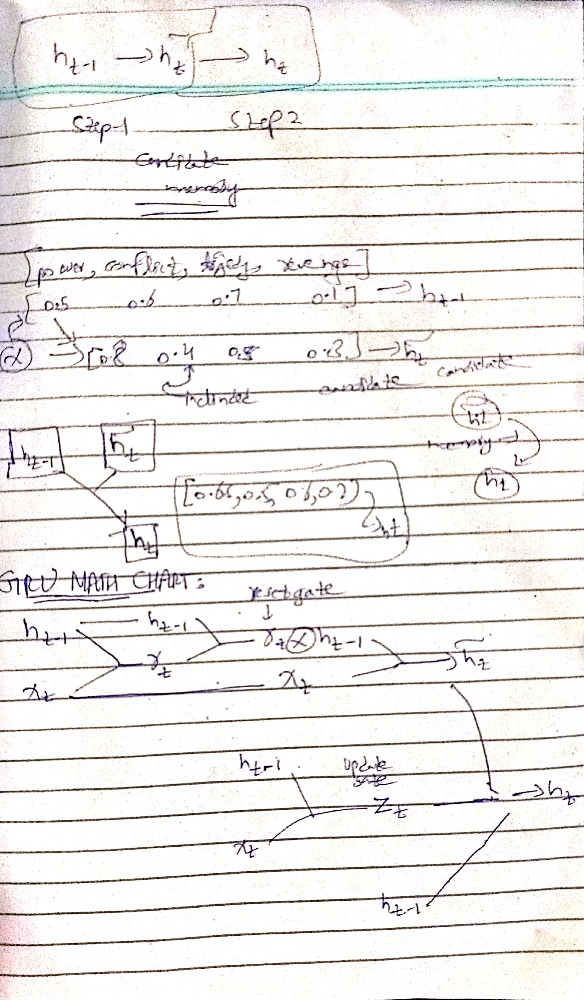 h_{t-1} → h̃_t → h_t
Step-1 Step 2
Candidate
memory
[power, conflict, revenge]
[0.5 0.6 0.7 0.1] → h_{t-1}
α → [0.8 0.4 0.3] → h̃_t
candidate candidate
h̃_t
memory →
h_t
h_{t-1} h̃_t
h_t
h_t
GRU MATH CHART:
reset gate
↓
h_{t-1} h_{t-1} r_t ⊗ h_{t-1} → h̃_t
r_t
x_t x_t
h_{t-1} update
gate
z_t → h_t
x_t
h_{t-1}